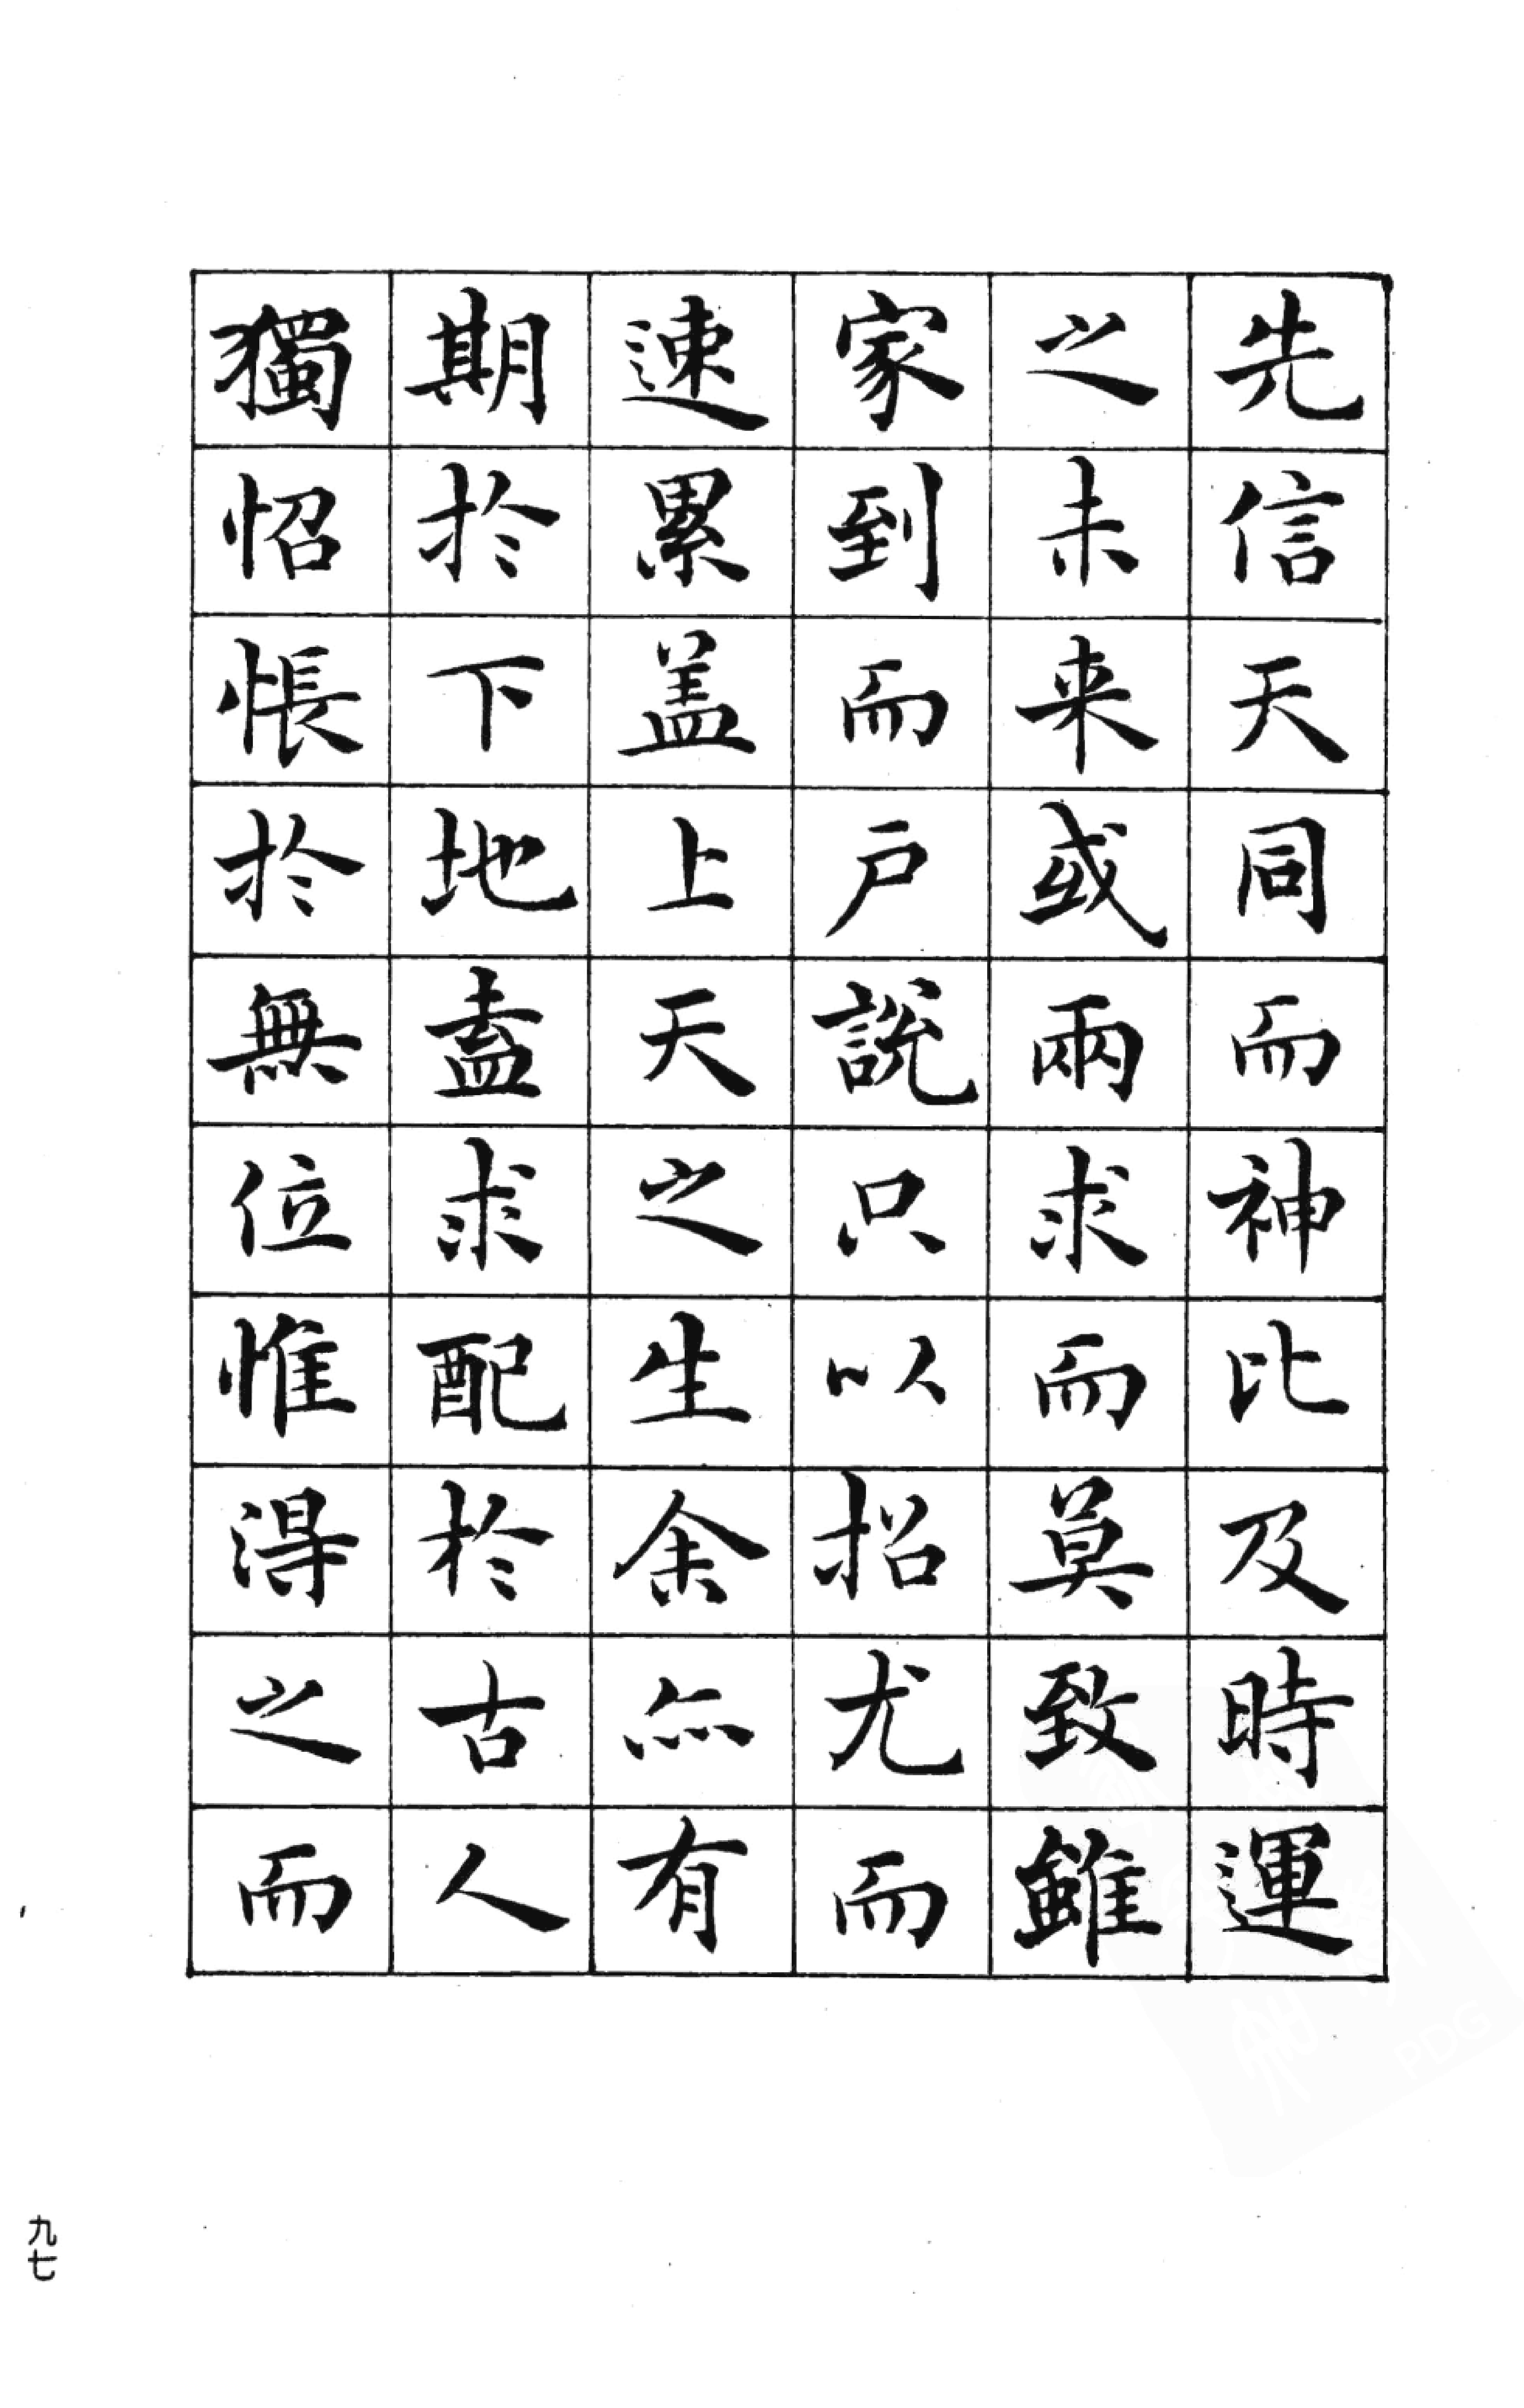 先信天同而神比及時運
之未来或兩求而莫致雖
家到而户説只以招尤而
速累盖上天之生余亦有
期於下地盍求配於古人
獨怊悵於無位惟得之而
九七